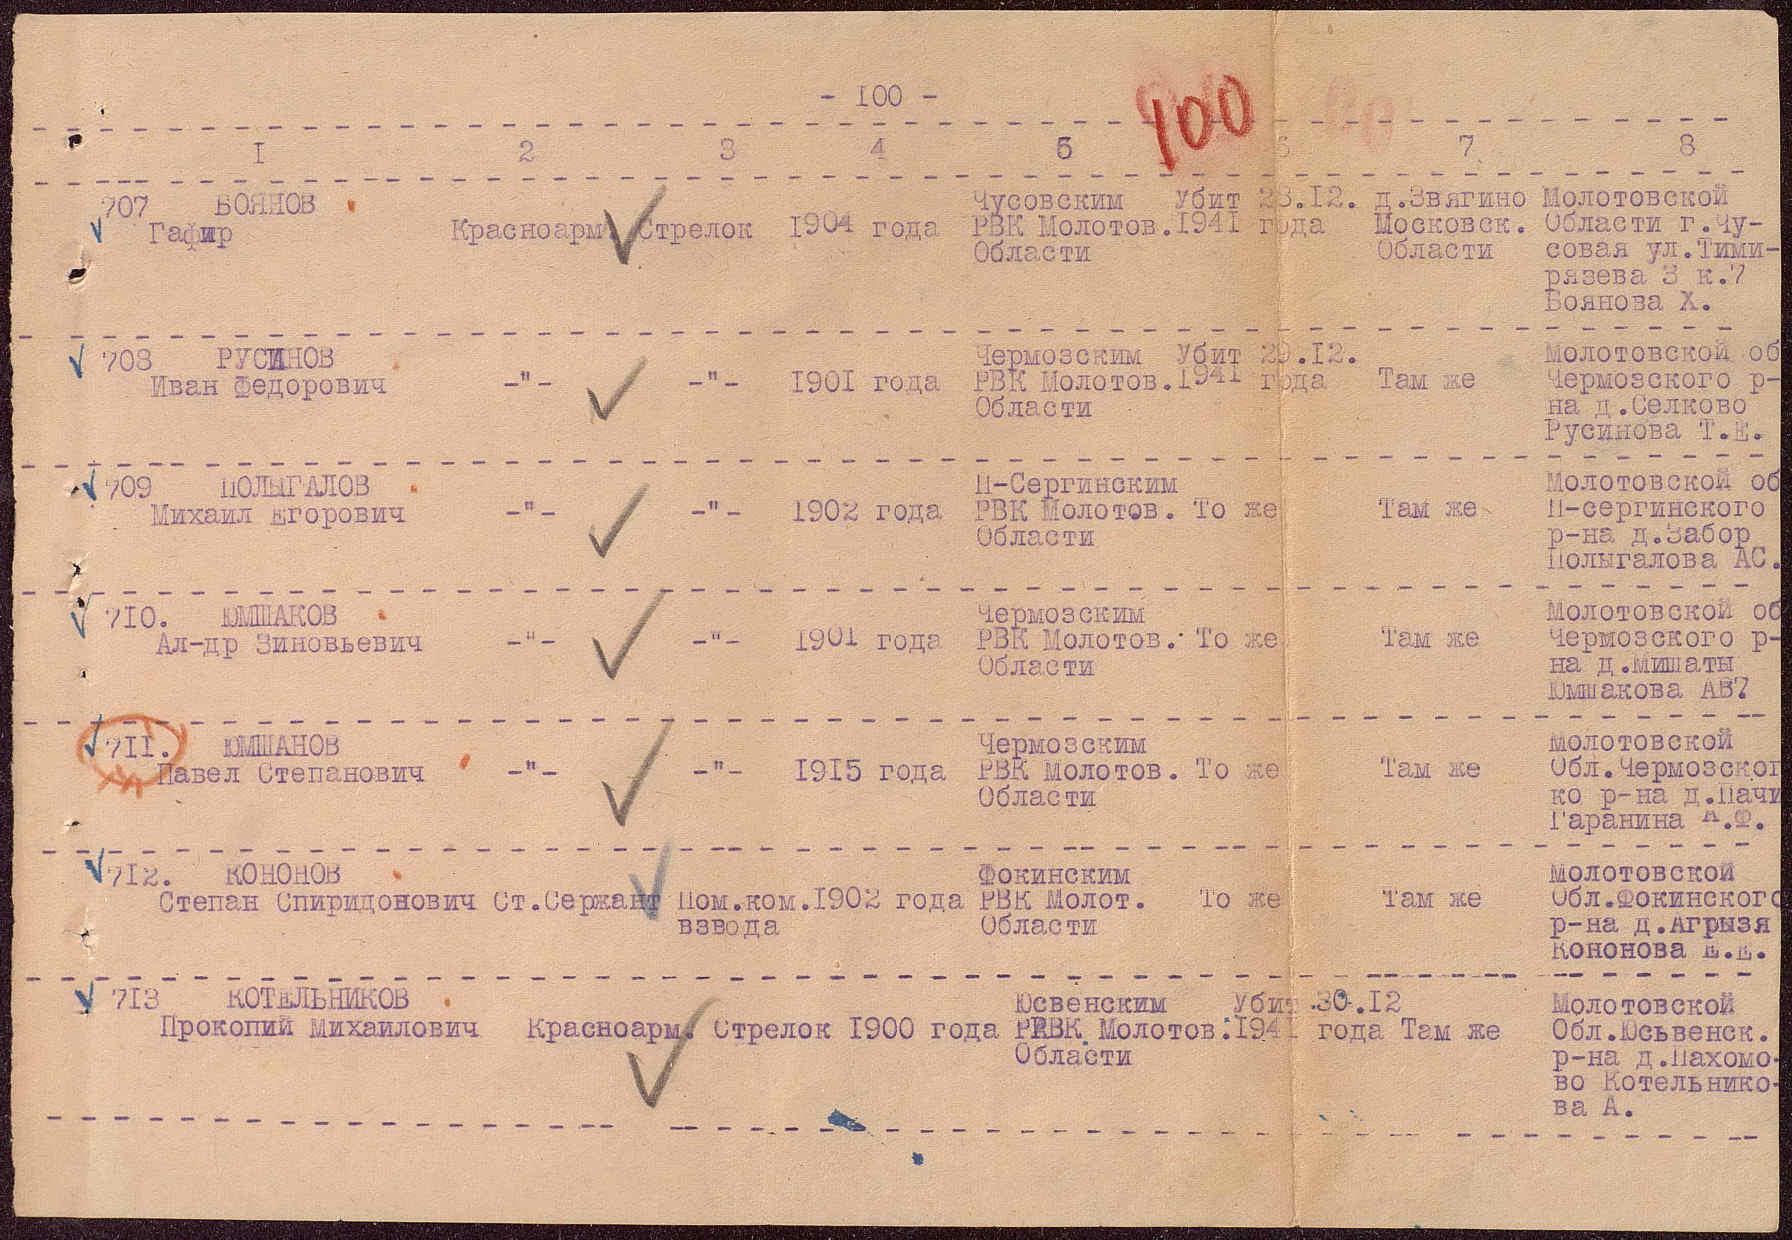 - 100 -
100
I 2 3 4 5 6 7 8
707 БОЯНОВ Чусовским Убит 28.12. д.Звягино Молотовской
Гафир Красноарм. Стрелок 1904 года РВК Молотов. 1941 года Московск. Области г.Чу-
Области Области совая ул.Тими-
рязева 3 к.7
Боянова Х.
708 РУСИНОВ Чермозским Убит 29.12. Молотовской об
Иван Федорович -"- -"- 1901 года РВК Молотов. 1941 года Там же Чермозского р-
Области на д.Селково
Русинова Т.Е.
709 ПОЛЫГАЛОВ П-Сергинским Молотовской об
Михаил Егорович -"- -"- 1902 года РВК Молотов. То же Там же П-сергинского
Области р-на д.Забор
Полыгалова АС.
710. ЮМШАКОВ Чермозским Молотовской об
Ал-др Зиновьевич -"- -"- 1901 года РВК Молотов. То же Там же Чермозского р-
Области на д.Мишаты
Юмшакова АВ7
711. ЮМШАНОВ Чермозским Молотовской
Павел Степанович -"- -"- 1915 года РВК Молотов. То же Там же Обл.Чермозског
Области ко р-на д.Пачи
Гаранина А.Ф.
712. КОНОНОВ Фокинским Молотовской
Степан Спиридонович Ст.Сержант Пом.ком. 1902 года РВК Молот. То же Там же Обл.Фокинского
взвода Области р-на д.Агрызя
Кононова Е.Е.
713 КОТЕЛЬНИКОВ Юсвенским Убит 30.12 Молотовской
Прокопий Михаилович Красноарм. Стрелок 1900 года РВК Молотов. 1941 года Там же Обл.Юсьвенск.
Области р-на д.Пахомо-
во Котельнико-
ва А.